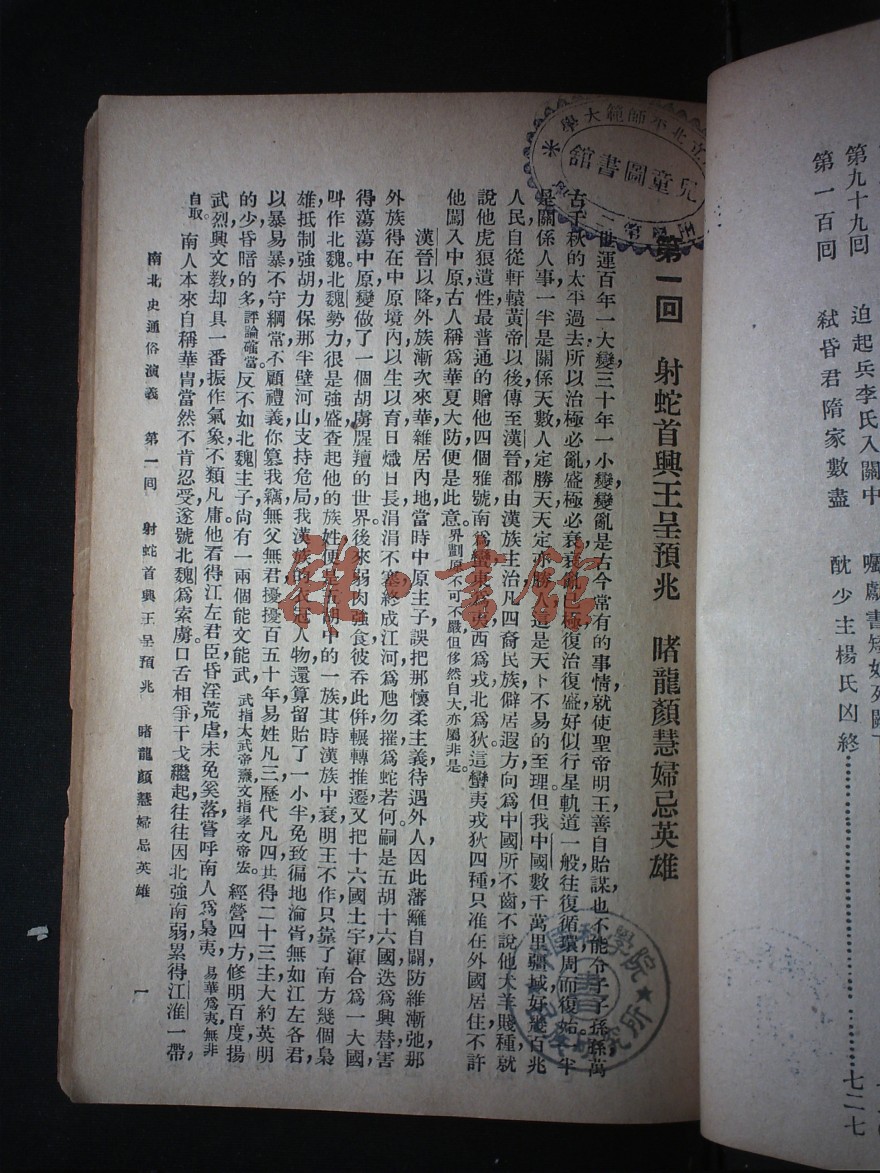 第九十九回 迫起兵李氏入關中
第一百回 弑昏君隋家數盡 酖少主楊氏凶終………………七二七
北平師範大學
兒童圖書館
第一回 射蛇首興王呈預兆 睹龍顏慧婦忌英雄
世運百年一大變，三十年一小變，變亂是古今常有的事情，就使聖帝明王，善自貽謀，也不能令子子孫孫，萬
古千秋的太平過去，所以治極必亂，盛極必衰，衰亂已極，復治復盛，好似行星軌道一般，往復循環，周而復始。一半
是關係人事，一半是關係天數，人定勝天，天定亦勝人，這是天下不易的至理。但我中國數千萬里疆域，好幾百兆
人民，自從軒轅黃帝以後，傳至漢晉，都由漢族主治，凡四裔民族，僻居遐方，向爲中國所不齒，不說他犬羊賤種，就
說他虎狼遺性，最普通的贈他四個雅號，南爲蠻，東爲夷，西爲戎，北爲狄。這蠻夷戎狄四種，只准在外國居住，不許
他闖入中原，古人稱爲華夏大防，便是此意。界劃原不可不嚴，但侈然自大，亦屬非是。
漢晉以降，外族漸次來華，雜居內地，當時中原主子，誤把那懷柔主義，待遇外人，因此藩籬自闢，防維漸弛，那
外族得在中原境內，以生以育，日熾日長，涓涓不塞，終成江河，爲虺勿摧，爲蛇若何。嗣是五胡十六國，迭爲興替，害
得蕩蕩中原，變做了一個胡虜腥羶的世界。後來弱肉強食，彼吞此併，輾轉推遷，又把十六國土宇，渾合爲一大國，
叫作北魏。北魏勢力，很是強盛，查起他的族姓，便是五胡中的一族，其時漢族中衰，明王不作，只靠了南方幾個梟
雄，抵制強胡，力保那半壁河山，支持危局，我漢族的衣冠人物，還算留貽了一小半，免致徧地淪胥。無如江左各君，
以暴易暴，不守綱常，不顧禮義，你篡我竊，無父無君，擾擾百五十年，易姓凡三，歷代凡四，共得二十三主，大約英明
的少，昏暗的多，評論確當。反不如北魏主子，尙有一兩個能文能武，武指太武帝燾，文指孝文帝宏。經營四方，修明百度，揚
武烈，興文敎，却具一番振作氣象，不類凡庸。他看得江左君臣，昏淫荒虐，未免奚落，嘗呼南人爲島夷，易華爲夷，無非
自取。南人本來自稱華胄，當然不肯忍受，遂號北魏爲索虜。口舌相爭，干戈繼起，往往因北強南弱，累得江淮一帶，
南北史通俗演義 第一回 射蛇首興王呈預兆 睹龍顏慧婦忌英雄 一